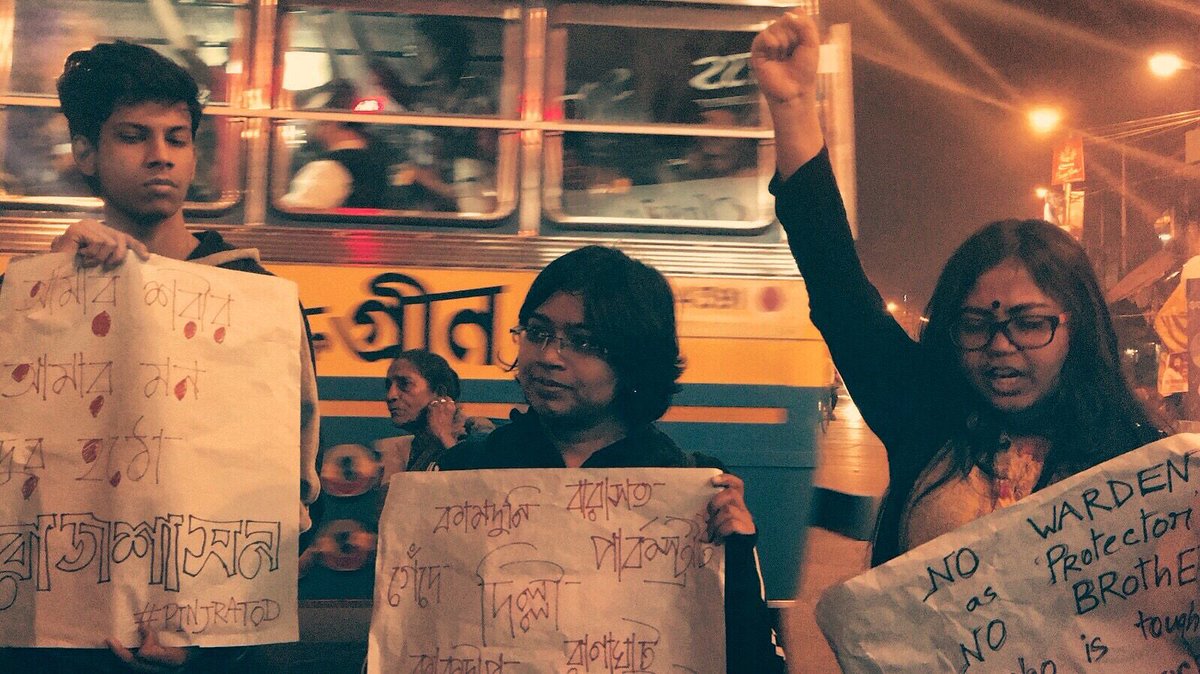 আমার শরীর
আমার মন
দূর হঠো
রাজশাসন
#PINJRATOD
গ্রীন
কামদুনি বারাসত
পার্কস্ট্রীট
গেঁদে দিল্লী
কাকদ্বীপ রাণাঘাট
NO WARDEN
as 'Protector
NO BRothE
who is tough